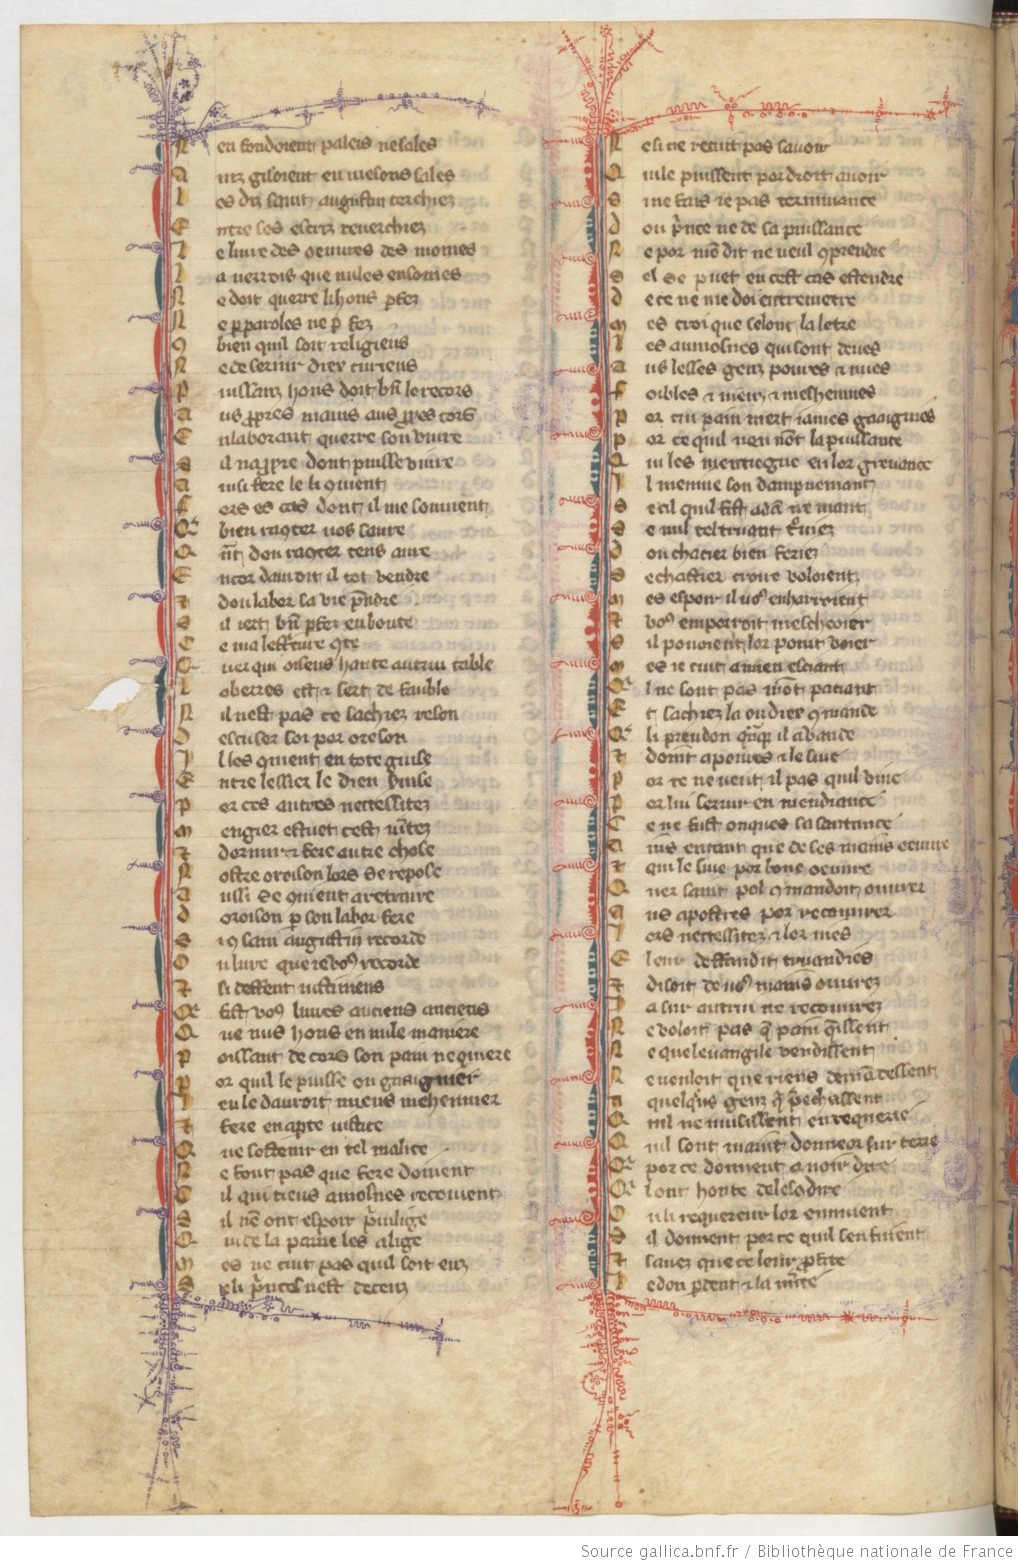 N en fondoient palais ne sales
A ntz gisoient en mesons sales
L es diz saint augustin cerchiez
E ntre ses escriz reverchiez
L e livre des oeuvres des moines
L a verrois que nules ensoines
N e doit querre li hons pfez
N e p paroles ne p fez
9 bien quil soit religieus
N e de servir dieu curieus
P uissanz hons doit bn le recors
A us ppres mains aus ppres cors
E n laborant querre son vivre
S il na ppre dont puisse vivre
A insi fere le li qvient
F ors es cas dont il me souvient
bien raqter vos savre
Q nt don raqter tens avre
E ncor dauroit il tot vendre
T dou labor sa vie pndre
S il iert bn pfez en bonte
C e ma lescture qte
C ar qui oiseus hante autrui table
L oberres est & sert de fauble
N il nest pas ce sachiez reson
D escuser soi por oreson
I l les qvient en tote guise
E ntre lessier le dieu svise
P or ces autres necessitez
M engier estuet cest vitez
T dormir & fere autre chose
N ostre oroison lors se repose
A ussi se qvient a retraire
D oroison p son labor fere
S i 9 saint augustin recorde
O u livre que ie vos recorde
T si deffent iustiniens
fist vos livres anciens anciens
Q ue nus hons en nule maniere
P oissant de cors son pain ne quiere
P or quil le puisse ou gaaignier
L en le dauroit mieus mehennier
T fere en apte iustice
Q ue sostenir en tel malice
N e font pas que fere doivent
C il qui tieus amosnes recoivent
S il nen ont espoir privilige
Q ui de la paine les alige
M es ne cuit pas quil soit euz
S e li princes nest deceuz
N e si ne recuit pas savoir
Q uil le puissent por droit avoir
S i ne fais ie pas terminance
D ou pnce ne de sa puissance
N e por mon dit ne veul 9prendre
S el se puet en cest cas estendre
D e ce ne me doi entremetre
M es croi que selonc la letre
L es aumosnes qui sont deues
A us lesses genz povres & nues
F oibles & vieuz & mehennies
P or cui pain niert iames gaaignies
P or ce quil nen nont la puissance
Q ui les meniegue en lor grevance
I l meniue son dampnemant
S e cil qui fist adan ne mant
S e nul tel truant truvez
D ou chatier bien feriez
S e chastier croire voloient
M es espoir il vos enharroient
T vos emporroit mescheoier
S il pouoient lor point veier
M es ie cuit a mien esciant
l ne sont pas mont paciant
E t sachiez la ou diex 9mande
li preudon qnquil a bande
T doint a povres & le sive
P or ce ne veut il pas quil vive
P or lui servir en mendiance
C e ne fust onques sa santance
A ins entant que de ses mains oeuvre
T qui le sive por bone oeuvre
Q uer saint pol 9mandoit ouvrer
A us apostres por recouvrer
L ors necessitez & lor mes
E leur deffandit truandies
T disoit de vos mains ouvrez
I a sur autrui ne recouvrez
N e voloit pas q pain qissent
N e que levangile vendissent
N e vouloit que riens demandessent
A quelqns genz q prechassent
Q uil ne toussissent en requerre
Q uil sont maint donneor sur terre
por ce donnent a voir dire
lont honte de lescondire
O u li requereur lor ennuient
S il donnent por ce quil sen fuient
T savez que ce leur pfite
L e don pdent & la mite
Source gallica.bnf.fr / Bibliothèque nationale de France